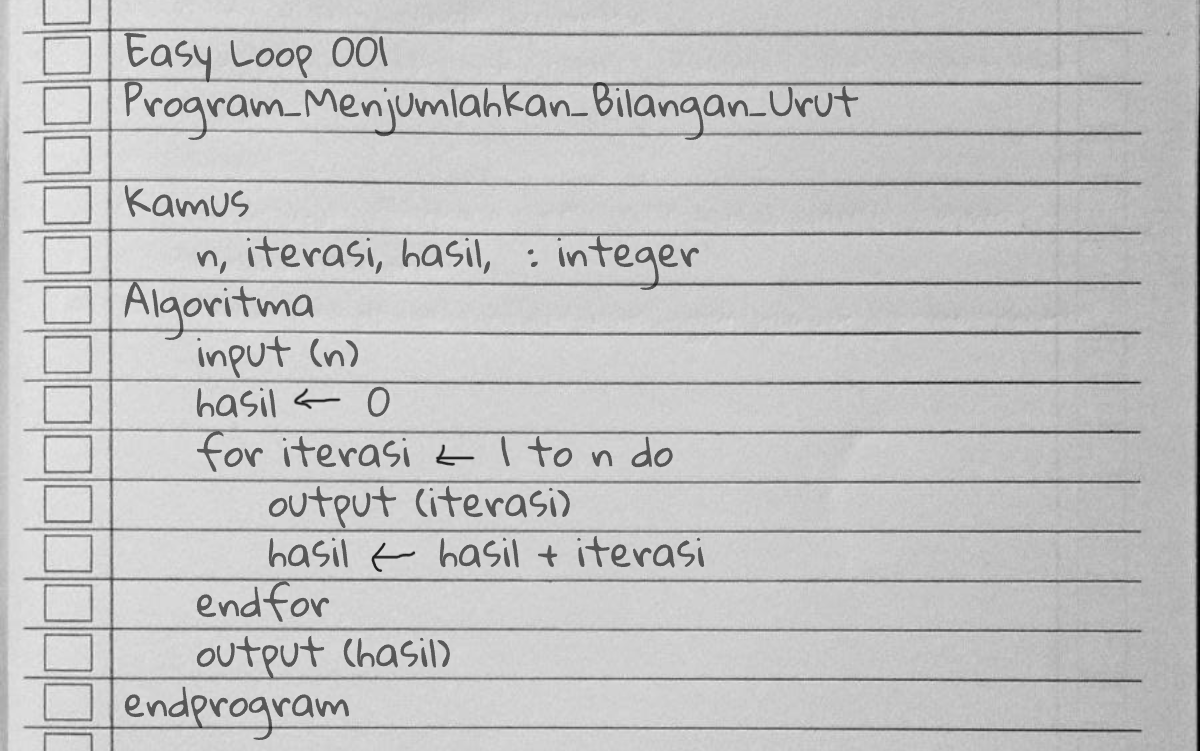 Easy Loop 001
Program_Menjumlahkan_Bilangan_Urut
Kamus
n, iterasi, hasil, : integer
Algoritma
input (n)
hasil ← 0
for iterasi ← 1 to n do
output (iterasi)
hasil ← hasil + iterasi
endfor
output (hasil)
endprogram